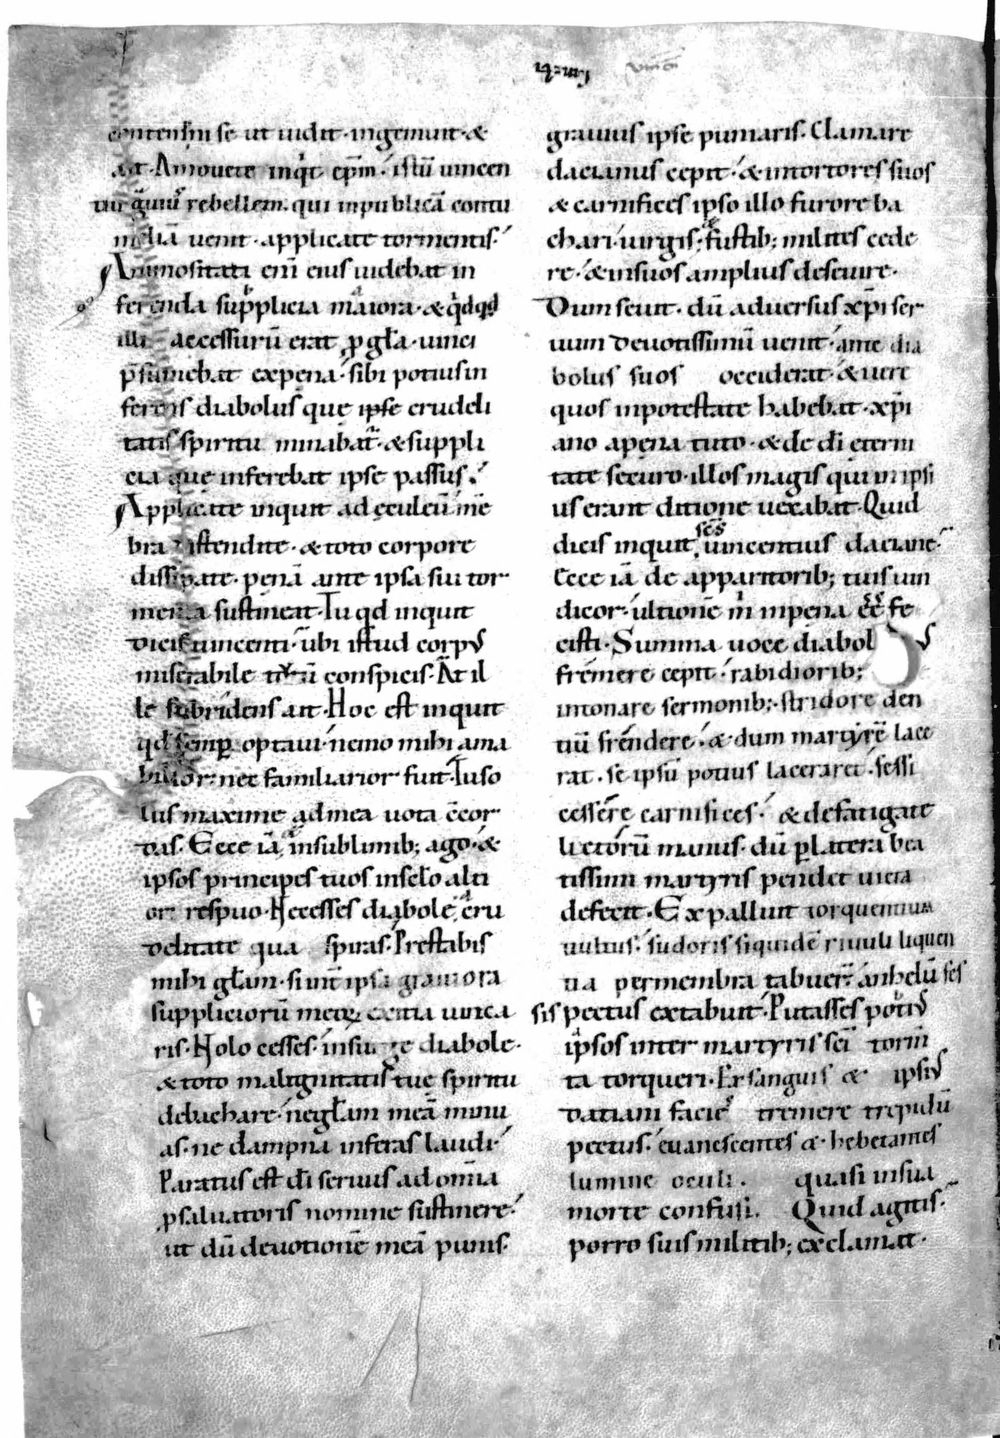 se ut uidit · ingemuit · &
ait · Amouete inqͥt ep̄m · istū uincen
rebellem · qui inpublicā contu
meliā uenit · applicate tormentis ·
Animositati enī eius uidebat in
ferenda supplicia maiora · &
illi accessurū erat ꝓ gła · uinci
p̄sumebat expena · sibi potius in
ferens diabolus quę ipse crudeli
tatis spiritu minabat · & suppli
cia quę inferebat ipse passus ·
Applicate inquit ad ęculeū mē
bra distendite · & toto corpore
dissipate · penā ante ipsa sui tor
menta sustineat · Tu qd inquit
dicis uincenti · ubi istud corpꝰ
miserabile conspicis · At il
le subridens ait · Hoc est inquit
qd semꝑ optaui · nemo mihi ama
bilior · nec familiarior fuit · Tu so
lus maxime ad mea uota c̄cor
das · Ecce iā insublimib; ago · &
ipsos principes tuos insc̄lo alti
or respuo · Ne cesses diabole cru
delitate qua spiras · Prestabis
mihi głam · si uint̄ ipsa grauiora
suppliciorū uinca
ris · Nolo cesses · insurge diabole ·
& toto malignitatis tuę spiritu
debachare · ne głam meā minu
as · ne dampna inferas laudi ·
Paratus est dī seruus ad omīa
ꝓ saluatoris nomine sustinere ·
ut dū deuotionē meā punis ·
grauius ipse puniaris · Clamare
dacianus cepit · & intortores suos
& carnifices ipso illo furore ba
chari · uirgis · fustib; milites cede
re · & insuos amplius deseuire ·
Dum seuit · dū aduersus xp̄i ser
uum deuotissimū uenit · ante dia
bolus suos occiderat · & uere
quos inpotestate habebat · xp̄i
ano apena tuto · & de dī ęterni
tate securo · illos magis qui in ipsi
us erant ditione uexabat · Quid
dicis inquit sc̄s uincentius daciane ·
Ecce iā de apparitorib; tuis uin
dicor · ultionē m̄ inpena fe
cisti · Summa uoce diabolꝰ
fremere cepit · rabidiorib;
intonare sermonib; · stridore den
tiū frendere · & dum martyrē lace
rat · se ipsū potius laceraret · Fessi
cessere carnifices · & defatigate
lictorū manus · dū ꝑ latera bea
tissimi martyris pendet uicta
defecit · Expalluit torquentium
uultus · sudoris siquidē riuuli liquen
tia permembra tabuer̄ · anhelū fes
sis pectus extabuit · Putasses potiꝰ
ipsos inter martyris sc̄i torm̄
ta torqueri · Exsanguis & ipsiꝰ
datiani facies tremere trepidū
pectus · euanescentes & hebetantes
lumine oculi · quasi insua
morte confusi · Quid agitis ·
porro suis militib; exclamat ·